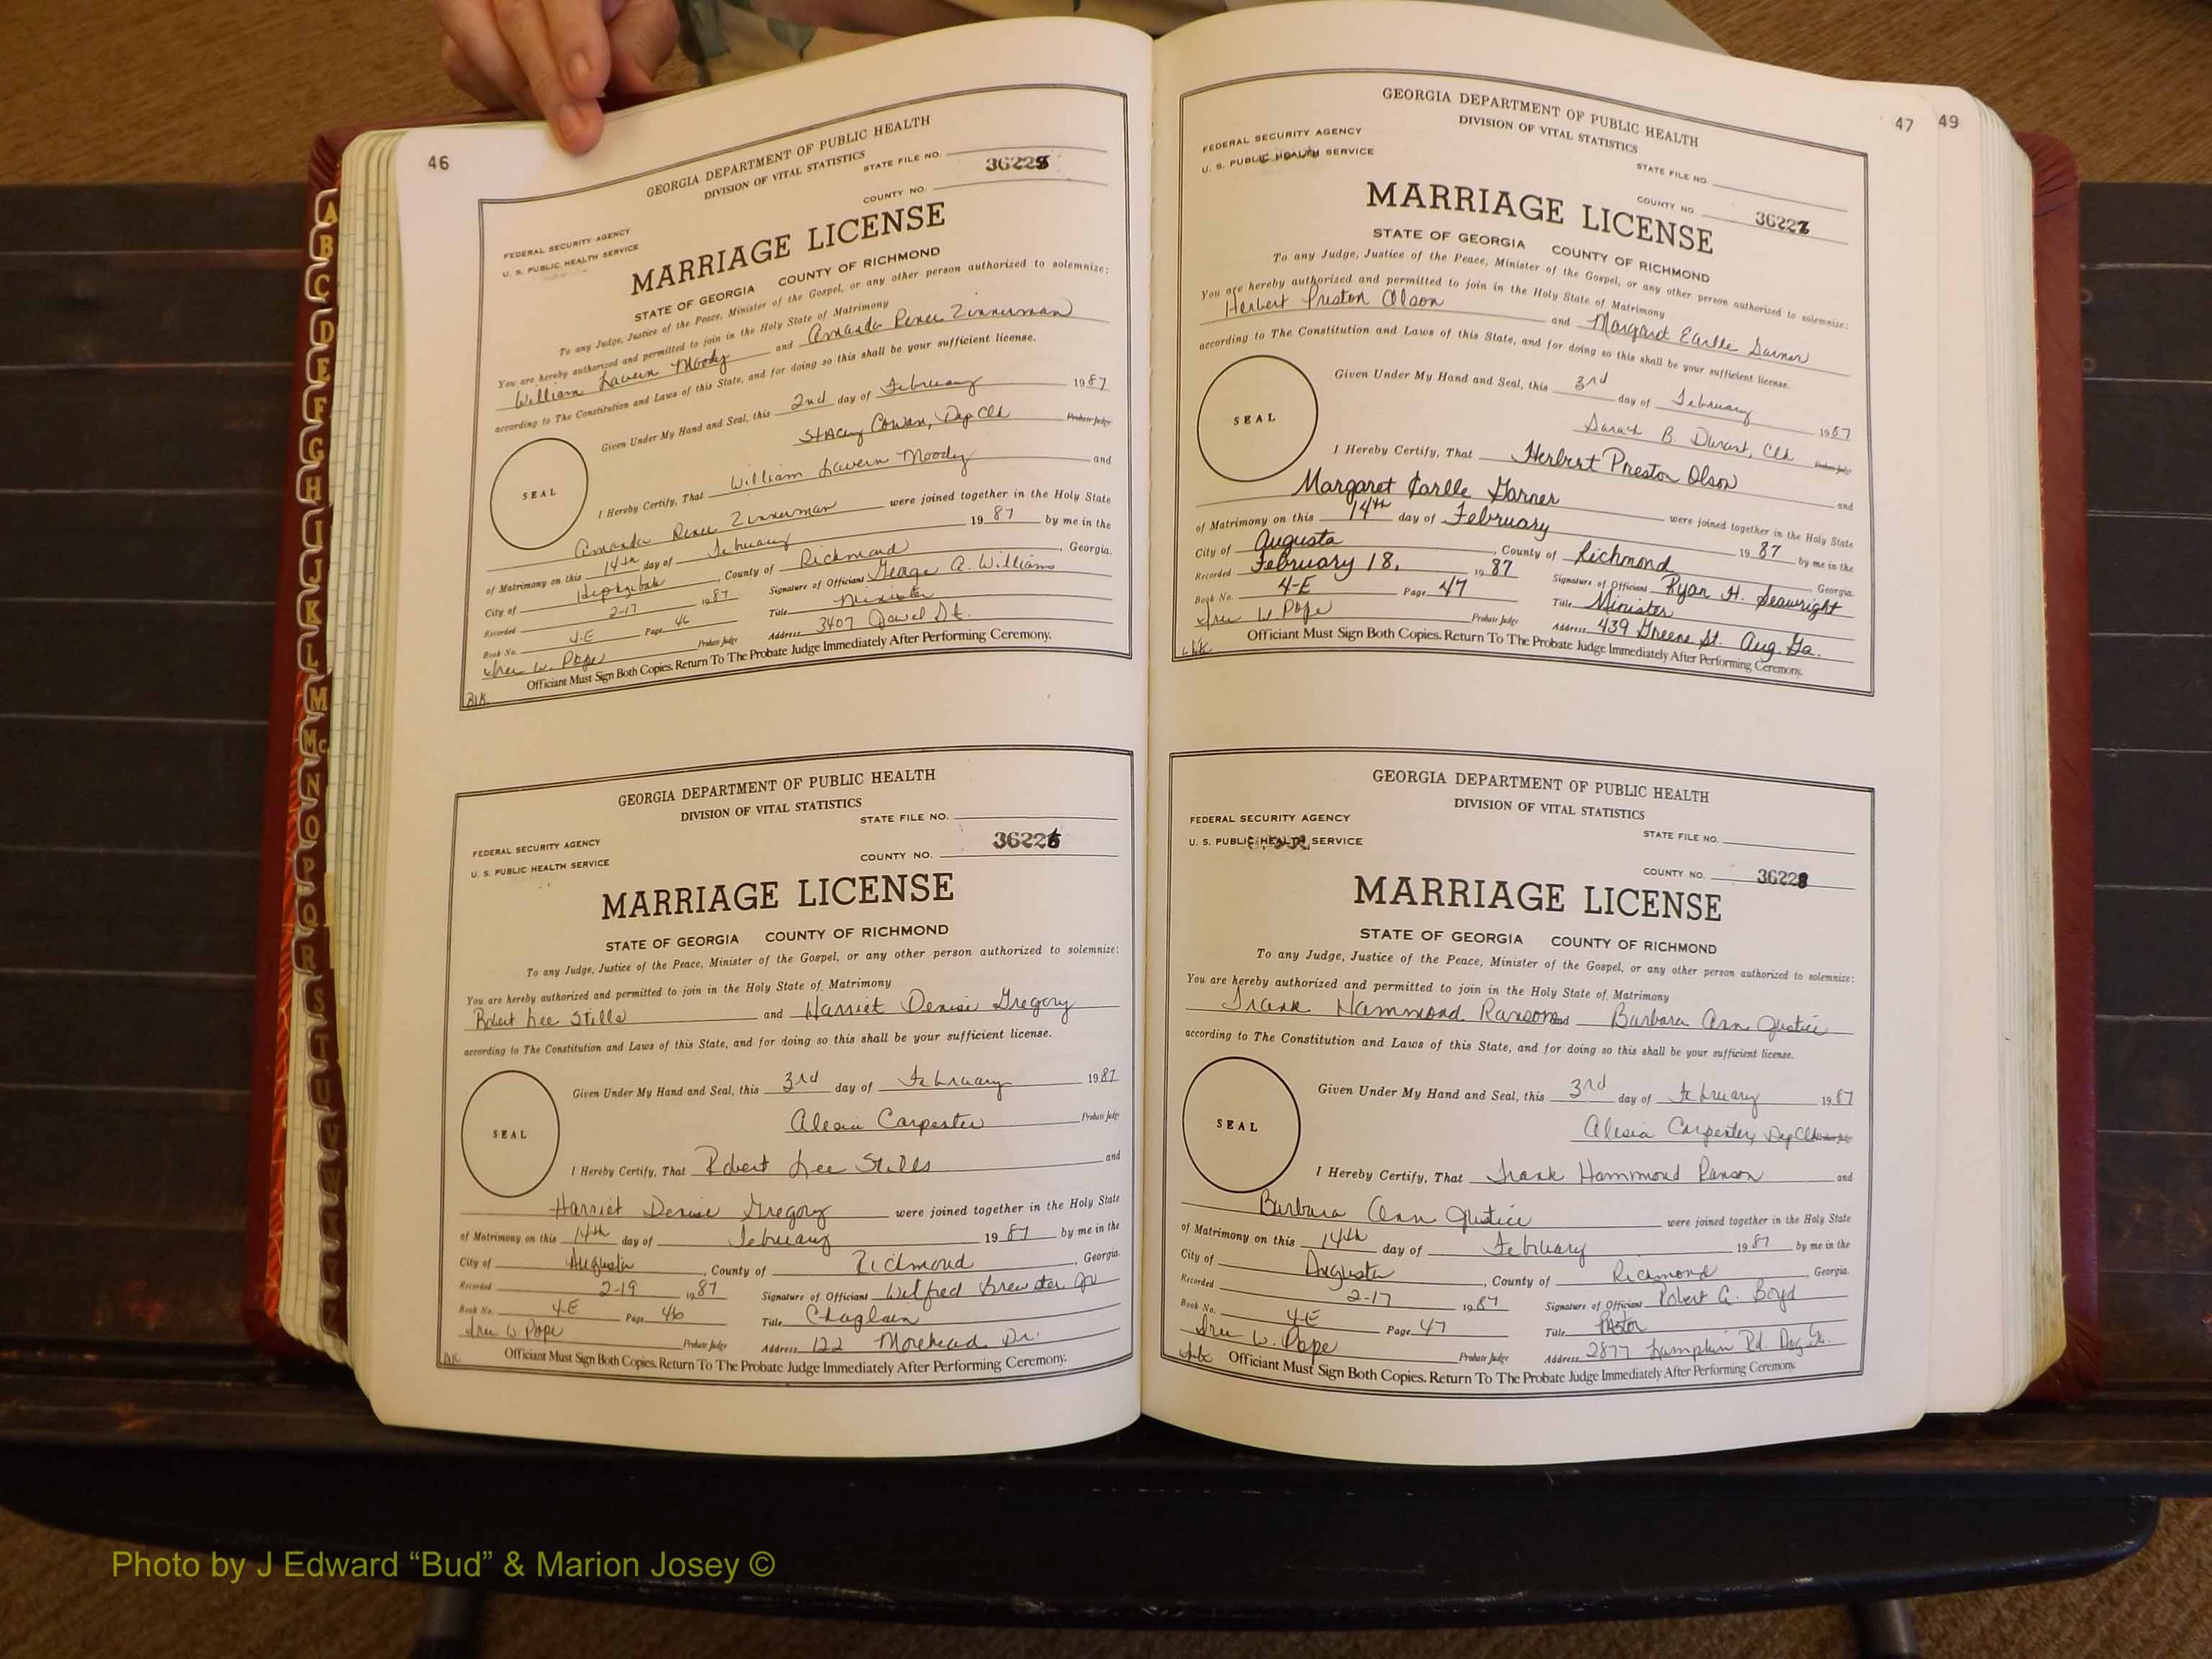 46
GEORGIA DEPARTMENT OF PUBLIC HEALTH
DIVISION OF VITAL STATISTICS
STATE FILE NO.
COUNTY NO. 36225
FEDERAL SECURITY AGENCY
U. S. PUBLIC HEALTH SERVICE
MARRIAGE LICENSE
STATE OF GEORGIA COUNTY OF RICHMOND
To any Judge, Justice of the Peace, Minister of the Gospel, or any other person authorized to solemnize:
You are hereby authorized and permitted to join in the Holy State of Matrimony
William Lavern Moody and Amanda Renee Zinnerman
according to The Constitution and Laws of this State, and for doing so this shall be your sufficient license.
Given Under My Hand and Seal, this 2nd day of February 1987
Stacey Cowan, Dep Clk Probate Judge
SEAL
I Hereby Certify, That William Lavern Moody and
Amanda Renee Zinnerman were joined together in the Holy State
of Matrimony on this 14th day of February 1987 by me in the
City of Hephzibah, County of Richmond, Georgia.
Recorded 2-17 1987 Signature of Officiant George A. Williams
Book No. 4-E Page 46 Title Minister
Probate Judge Address 3407 St.
W. Pope
Officiant Must Sign Both Copies. Return To The Probate Judge Immediately After Performing Ceremony.
GEORGIA DEPARTMENT OF PUBLIC HEALTH
DIVISION OF VITAL STATISTICS
STATE FILE NO.
FEDERAL SECURITY AGENCY
U. S. PUBLIC HEALTH SERVICE
COUNTY NO. 36226
MARRIAGE LICENSE
STATE OF GEORGIA COUNTY OF RICHMOND
To any Judge, Justice of the Peace, Minister of the Gospel, or any other person authorized to solemnize:
You are hereby authorized and permitted to join in the Holy State of Matrimony
Robert Lee Stills and Harriet Denise Gregory
according to The Constitution and Laws of this State, and for doing so this shall be your sufficient license.
Given Under My Hand and Seal, this 3rd day of February 1987
Alesia Carpenter Probate Judge
SEAL
I Hereby Certify, That Robert Lee Stills and
Harriet Denise Gregory were joined together in the Holy State
of Matrimony on this 14th day of February 1987 by me in the
City of Augusta, County of Richmond, Georgia.
Recorded 2-19 1987 Signature of Officiant Wilfred Brewster Jr
Book No. 4-E Page 46 Title Chaplain
W. Pope Probate Judge Address 122 Morehead Dr.
Officiant Must Sign Both Copies. Return To The Probate Judge Immediately After Performing Ceremony.
47 49
GEORGIA DEPARTMENT OF PUBLIC HEALTH
DIVISION OF VITAL STATISTICS
FEDERAL SECURITY AGENCY
U. S. PUBLIC HEALTH SERVICE
STATE FILE NO.
COUNTY NO. 36227
MARRIAGE LICENSE
STATE OF GEORGIA COUNTY OF RICHMOND
To any Judge, Justice of the Peace, Minister of the Gospel, or any other person authorized to solemnize:
You are hereby authorized and permitted to join in the Holy State of Matrimony
Herbert Preston Olson and Margaret Earlle Garner
according to The Constitution and Laws of this State, and for doing so this shall be your sufficient license.
Given Under My Hand and Seal, this 3rd day of February 1987
Sarah B. Durant, Clk Probate Judge
SEAL
I Hereby Certify, That Herbert Preston Olson and
Margaret Earlle Garner were joined together in the Holy State
of Matrimony on this 14th day of February 1987 by me in the
City of Augusta, County of Richmond, Georgia.
Recorded February 18, 1987 Signature of Officiant Ryan H. Seawright
Book No. 4-E Page 47 Title Minister
W. Pope Probate Judge Address 439 Greene St. Aug. Ga.
Officiant Must Sign Both Copies. Return To The Probate Judge Immediately After Performing Ceremony.
GEORGIA DEPARTMENT OF PUBLIC HEALTH
DIVISION OF VITAL STATISTICS
FEDERAL SECURITY AGENCY
U. S. PUBLIC HEALTH SERVICE
STATE FILE NO.
COUNTY NO. 36228
MARRIAGE LICENSE
STATE OF GEORGIA COUNTY OF RICHMOND
To any Judge, Justice of the Peace, Minister of the Gospel, or any other person authorized to solemnize:
You are hereby authorized and permitted to join in the Holy State of Matrimony
Frank Hammond Ranson and Barbara Ann Justice
according to The Constitution and Laws of this State, and for doing so this shall be your sufficient license.
Given Under My Hand and Seal, this 3rd day of February 1987
Alesia Carpenter, Dep Clk
SEAL
I Hereby Certify, That Frank Hammond Ranson and
Barbara Ann Justice were joined together in the Holy State
of Matrimony on this 14th day of February 1987 by me in the
City of Augusta, County of Richmond, Georgia.
Recorded 2-17 1987 Signature of Officiant Robert G. Boyd
Book No. 4-E Page 47 Title Pastor
W. Pope Probate Judge Address 2877 Lumpkin Rd. Aug. Ga.
Officiant Must Sign Both Copies. Return To The Probate Judge Immediately After Performing Ceremony.
A
B
C
D
E
F
G
H
I
J
K
L
M
Mc
N
O
P
Q
R
S
T
U
V
Photo by J Edward “Bud” & Marion Josey ©